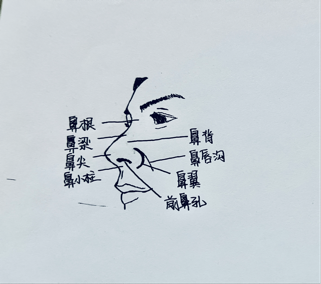 鼻根
鼻梁
鼻尖
鼻小柱
鼻背
鼻唇沟
鼻翼
前鼻孔